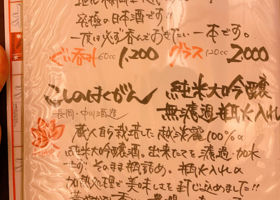 究極の日本酒です。
一度は必ず呑んでおきたい一本です。
ぐい呑み60cc 1,200 グラス120cc 2,000
こしのはくがん 純米大吟醸
無濾過 瓶火入れ
長岡・中川酒造
蔵人自ら栽培した越淡麗100%の
純米大吟醸酒。出来たてを濾過・加水
せず、そのまま瓶詰め。瓶火入れの
加熱処理で美味しさを封じ込めました!!